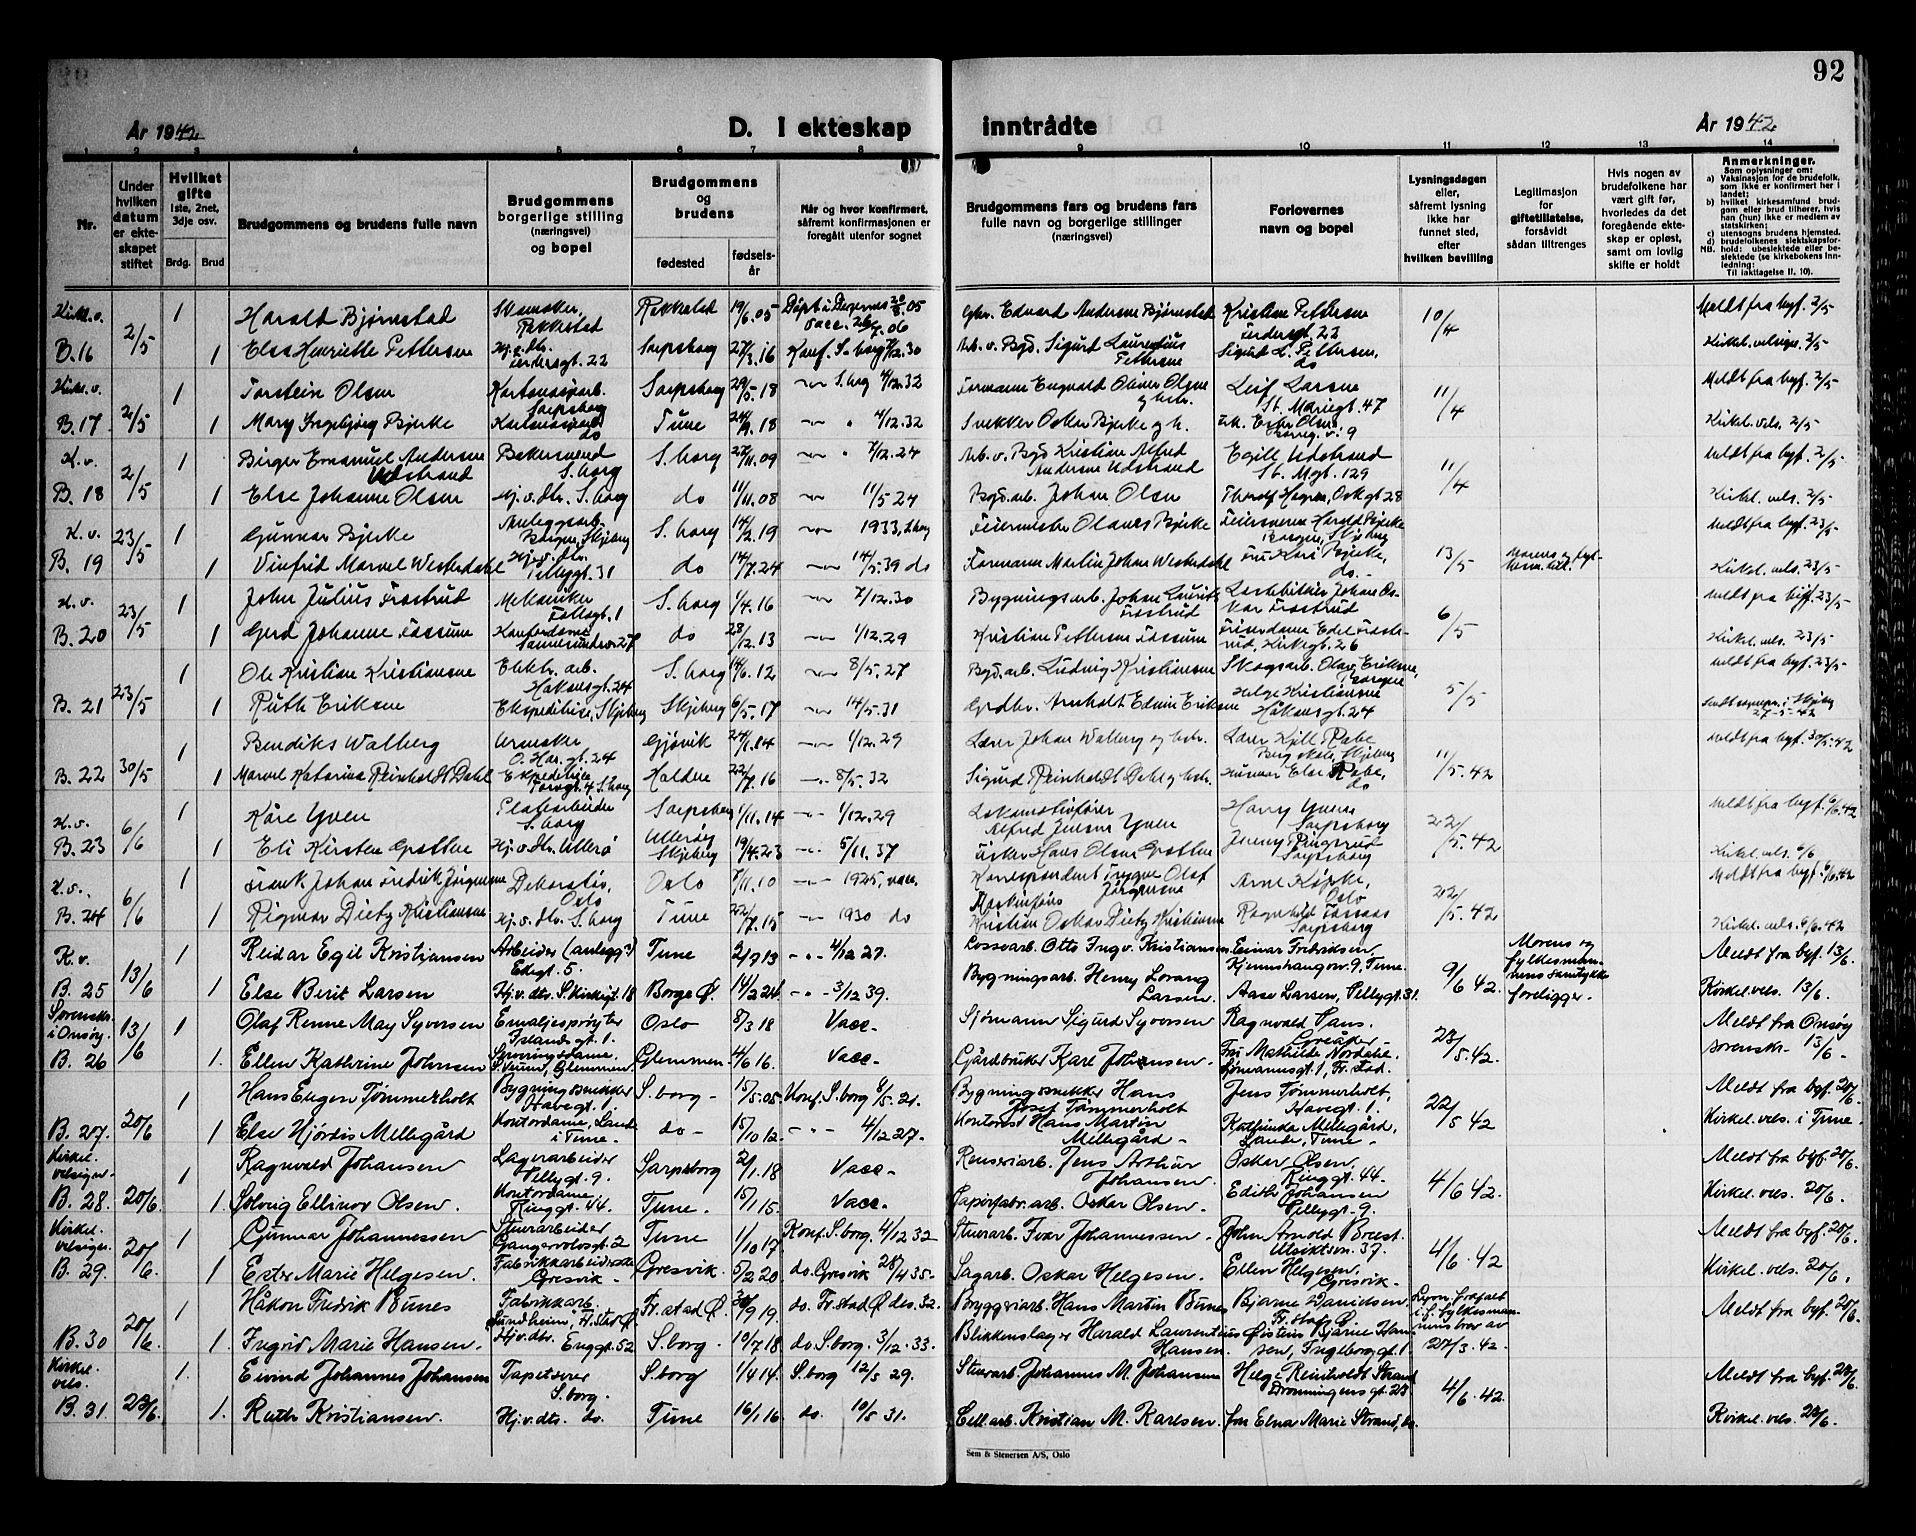 92
År 1942
D. I ekteskap
inntrådte
År 1942
1 2 3 4 5 6 7 8 9 10 11 12 13 14
Nr.
Under hvilken datum er ekteskapet stiftet
Hvilket gifte
1ste, 2net, 3dje osv.
Brdg. Brud
Brudgommens og brudens fulle navn
Brudgommens borgerlige stilling (næringsvei) og bopel
Brudgommens og brudens
fødested
fødselsår
Når og hvor konfirmert, såfremt konfirmasjonen er foregått utenfor sognet
Brudgommens fars og brudens fars fulle navn og borgerlige stillinger (næringsvei)
Forlovernes navn og bopel
Lysningsdagen eller, såfremt lysning ikke har funnet sted, efter hvilken bevilling
Legitimasjon for giftetillatelse, forsåvidt sådan tiltrenges
Hvis nogen av brudefolkene har vært gift før, hvorledes da det foregående ekteskap er opløst, samt om lovlig skifte er holdt
Anmerkninger.
Som oplysninger om:
a) Vaksinasjon for de brudefolk, som ikke er konfirmert her i landet;
b) hvilket kirkesamfund brudgom eller brud tilhører, hvis han (hun) ikke er medlem av statskirken;
c) utensogns brudens hjemsted.
d) brudefolkenes slektskapsforhold: ubeslektede eller beslektede (se kirkebokens Innledning:
NB.
Til iakttagelse II, 10).
Kirkl. v. 2/5 1 Harald Bjørnstad Rakkestad 19/6.05 Gbr. Edvard Andersen Bjørnstad Kristian Pettersen 10/4 Meldt fra byf. 2/5
Færdersgt. 22
B. 16 1 Else Henriette Pettersen Hj. v. dtr. Færdersgt. 22 Sarpsborg 27/3.16 Konf. S.borg 7/12.30 Arb. v. Byg. Sigurd Laurentius Pettersen Sigurd L. Pettersen, do Kirkel. velsign. 2/5
Kirkl. v. 2/5 1 Torstein Olsen Sarpsborg Sarpsborg 29/5.18 S.borg 4/12.32 Formann Engvald Oliver Olsen Leif Larsen St. Mariegt. 47 11/4 Meldt fra byf. 2/5
B. 17 1 Mary Ingebjørg Bjerke do Tune 24/9.18 4/12.32 Snekker Oskar Bjerke Kirkel. vels. 2/5
K. v. 2/5 1 Birger Emanuel Andersen Udstrand Bakersvend S.borg S.borg 22/11.09 7/12.24 Arb. v. Byg Kristian Alfred Andersen Udstrand Egill Udstrand St. Mgt. 129 11/4 Meldt fra byf. 2/5
B. 18 1 Else Johanne Olsen Hj. v. dtr. S.borg do 11/11.08 11/5 24 Bygd. arb. Johan Olsen Thorolf Hagen, Osk gt 28 Kirkel. vels. 2/5
K. v. 23/5 1 Gunnar Bjerke Anleggsarb. Borgen, Skjeberg S.borg 14/2.19 1933, S.borg Feiermester Olaves Bjerke Feiersvenn Harald Bjerke Borgen, Skjeberg Meldt fra byf. 23/5
B. 19 1 Vinfrid Marvel Westerdahl Hj. v. dtr. Pellygt. 31 do 14/7.24 14/5.39 do Formann Martin Johan Westerdahl Fru Kari Bjerke, do. 13/5 Kirkel. vels. 23/5
K. v. 23/5 1 John Julius Frostrud Mekaniker S.borg 1/4.16 7/12.30 Bygningsarb. Johan Laurits Frostrud Johan Oskar Frostrud 6/5 Meldt fra byf. 23/5
B. 20 1 Gerd Johanne Fossum Kontordame do 28/12.13 1/12.29 Kristian Pettersen Fossum Kirkegt. 26 Kirkel. vels. 23/5
23/5 1 Ole Kristian Kristiansen Elektr. arb. Håkonsgt. 24 S.borg 14/6.12 8/5.27 Bygd. arb. Ludvig Kristiansen Skogsarb. Olav Eriksen, Borgen 5/5 Meldt fra byf. 23/5
B. 21 1 Ruth Eriksen Ekspeditrise, Skjeberg Skjeberg 6/5.17 14/5.31 Grdbr. Arnholdt Edvin Eriksen Helge Kristiansen Håkonsgt. 24 27-5-42
30/5 1 Bendiks Walberg Urmaker O. Har. gt. 24 Gjøvik 24/1.14 1/12.29 Lærer Johan Walberg Lærer Kjell Rabe Berg skole, Skjeberg 11/5.42 Meldt fra byf. 30/5.42
B. 22 1 Marvel Katarina Reinholdt Dahl Ekspeditrise Torvgt. 4 S.borg Halden 22/7.16 8/5.32 Sigurd Reinholdt Dahl Else Rabe, do
K. v. 6/6 1 Kåre Yven Platearbeider S.borg Sarpsborg 1/11.14 1/12.29 Lokomotivfører Alfred Jensen Yven Harry Yven Sarpsborg 22/5.42 Meldt fra byf. 6/6.42
B. 23 1 Eli Kirsten Grøtten Hj. v. dtr. Ullerøy Ullerøy Skjeberg 19/4.23 5/11.37 Fisker Hans Olsen Grøtten Jenny Ringsrud Sarpsborg Kirkel. vels. 6/6
K. v. 6/6 1 Frank Johan Fredrik Jørgensen Dekoratør, Oslo Oslo 7/11.10 1925, vacc. Korrespondent Trygve Olaf Jørgensen Arne Køpke, Oslo 22/5.42 Meldt fra byf. 6/6.42
B. 24 1 Rigmor Dietz Kristiansen Hj. v. dtr. S.borg Tune 22/7.15 1930 do Maskinfører Kristian Oskar Dietz Kristiansen Ragnhild Fossaas Sarpsborg Kirkel. vels. 6/6.42
K. v. 13/6 1 Reidar Egil Kristiansen Arbeider (anlegg) Edegt. 5. Tune 2/9 13 4/12 27. Lossearb. Otto Ingv. Kristiansen Einar Fredriksen Kjennshaugv. 9, Tune. 9/6 42. Morens og fylkesmannens samtykke foreligger. Meldt fra byf. 13/6.
B. 25 1 Else Berit Larsen Hj. v. dtr. S. Kirkegt. 18 Borge Ø. 14/2 24. 3/12 39. Bygningsarb. Henry Lorang Larsen. Aase Larsen, Pellygt. 31. Kirkel. vels. 13/6.
Sorenskr. i Onsøy. 13/6 1 Olaf Renne May Syversen Emaljesprøyter Islandsgt. 1. Oslo 8/3 18 Vacc. Sjømann Sigurd Syversen Ragnvald Hans. Greåker. 23/5.42. Meldt fra Onsøy
B. 26 1. Ellen Kathrine Johnsen Serveringsdame. S. Veum, Glemmen. Glemmen 4/6 16. Vacc. Gårdbruker Karl Johansen Fru Mathilde Nordahl. Lømannsgt. 1, Fr.stad. sorenskr. 13/6
20/6 1 Hans Eugen Tømmerholt Bygningssnekker Havegt. 1. S.borg 15/5.05. Konf. S.borg 8/5.21. Bygningssnekker Hans Josef Tømmerholt Jens Tømmerholt, Havegt. 1. 22/5 42 Meldt fra byf. 20/6.
B. 27. 1 Else Hjørdis Mellegård Kontordame, Lande i Tune. do 15/10 12. 4/12 27. Kontorist Hans Martin Mellegård Kathinda Mellegård, Lande, Tune. Kirkel. vels. i Tune
Kirkel. velsign. 20/6. 1 Ragnvald Johansen Lagerarbeider Pellygt. 9. Sarpsborg 2/1.18 Vacc. Renseriarb. Jens Arthur Johansen. Oskar Olsen. Ringgt. 44. 4/6 42. Meldt fra byf. 20/6.
B. 28. 1 Solveig Ellinor Olsen. Kontordame Ringgt. 44. Tune. 15/1 15. Vacc. Papirfabr. arb. Oskar Olsen. Edith Johansen Pellygt. 9. Kirkel. vels. 20/6.
Kirkel. velsign. 20/6. 1 Gunnar Johannessen Stuearbeider Tune 1/10 17 Konf. S.borg. 4/12 32 Stuearb. Ivar Johannessen John Arnold Brest. Utsiktsvn. 37. 4/6. 42 Meldt fra byf. 20/6.
B. 29. 1 Ester Marie Helgesen. Fabrikkarbeiderske Gresvik Gresvik. 5/2 20 do. Gresvik 28/4 35. Sagarb. Oskar Helgesen. Ellen Helgesen, Gresvik Kirkel. vels. 20/6.
20/6. 1 Håkon Fredrik Bunes Fabrikkarb. Sundheim, Fr.stad Ø. Fr.stad Ø. 30/9 19. do. Fr.stad Ø des. 32. Bryggeriarb. Hans Martin Bunes Bjarne Davidsen. Fr.stad Ø Lysn. frafalt i h. fylkesmannens brev av 20/3.42. Meldt fra byf. 20/6.
B. 30 1. Ingrid Marie Hansen. Hj. v. dtr. Enggt. 52 S.borg 10/7 18 do. S.borg. 3/12. 33. Blikkenslager Harald Laurentius Hansen. Øistein Bjarne Hansen, Ingeborggt. 1.
Kirkel. vels. 23/6. 1. Eivind Johannes Johansen Tapetserer S.borg. S.borg 1/4 14. S.borg 12/5 29. Stuearb. Johannes M. Johansen Helge Reinholdt Strand Dronningensgt. 23 4/6. 42. Meldt fra byf. 23/6.
B. 31. 1. Ruth Kristiansen. Hj. v. dtr. do. Tune 16/1.16. do. 10/5 31. Cell. arb. Kristian M. Karlsen. fru Elna Marie Strand, do. Kirkel. vels. 23/6.
Sem & Stenersen A/S, Oslo